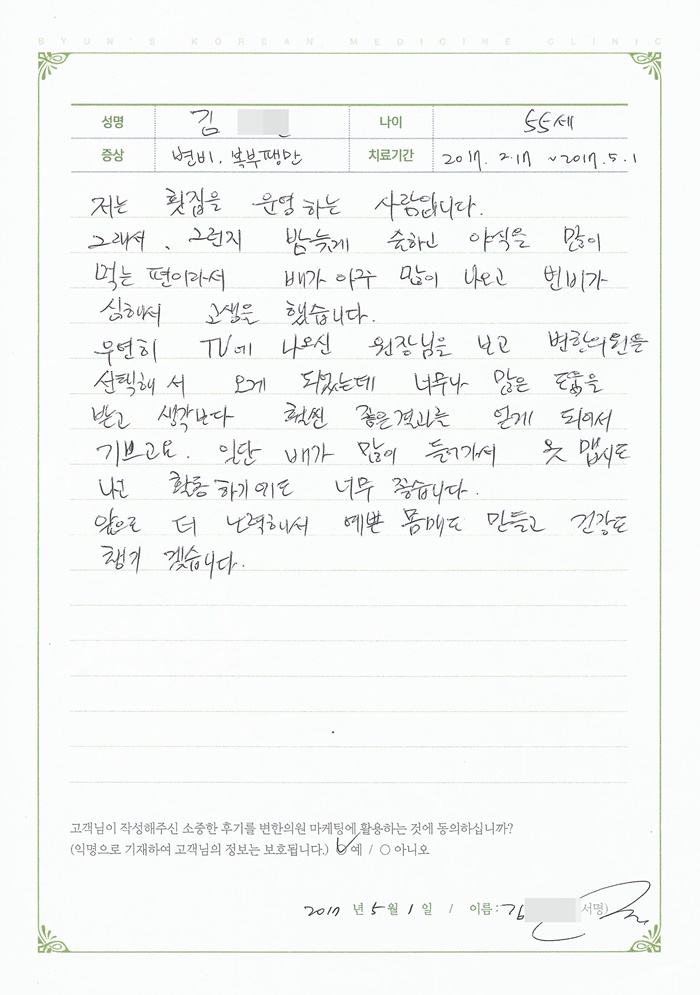 BYUN'S KOREAN MEDICINE CLINIC
성명 김 나이 55세
증상 변비. 복부팽만 치료기간 2017. 2.17 ~2017.5.1
저는 횟집을 운영하는 사람입니다.
그래서, 그런지 밤늦게 술하고 야식을 많이
먹는 편이라서 배가 아주 많이 나오고 변비가
심해서 고생을 했습니다.
우연히 TV에 나오신 원장님을 보고 변한의원을
선택해서 오게 되었는데 너무나 많은 도움을
받고 생각보다 훨씬 좋은결과를 얻게 되어서
기쁘고요. 일단 배가 많이 들어가서 옷 맵시도
나고 활동하기에도 너무 좋습니다.
앞으로 더 노력해서 예쁜 몸매도 만들고 건강도
챙기 겠습니다.
고객님이 작성해주신 소중한 후기를 변한의원 마케팅에 활용하는 것에 동의하십니까?
(익명으로 기재하여 고객님의 정보는 보호됩니다.) 예 / ○ 아니오
2017 년 5 월 1 일 / 이름: 김 서명)